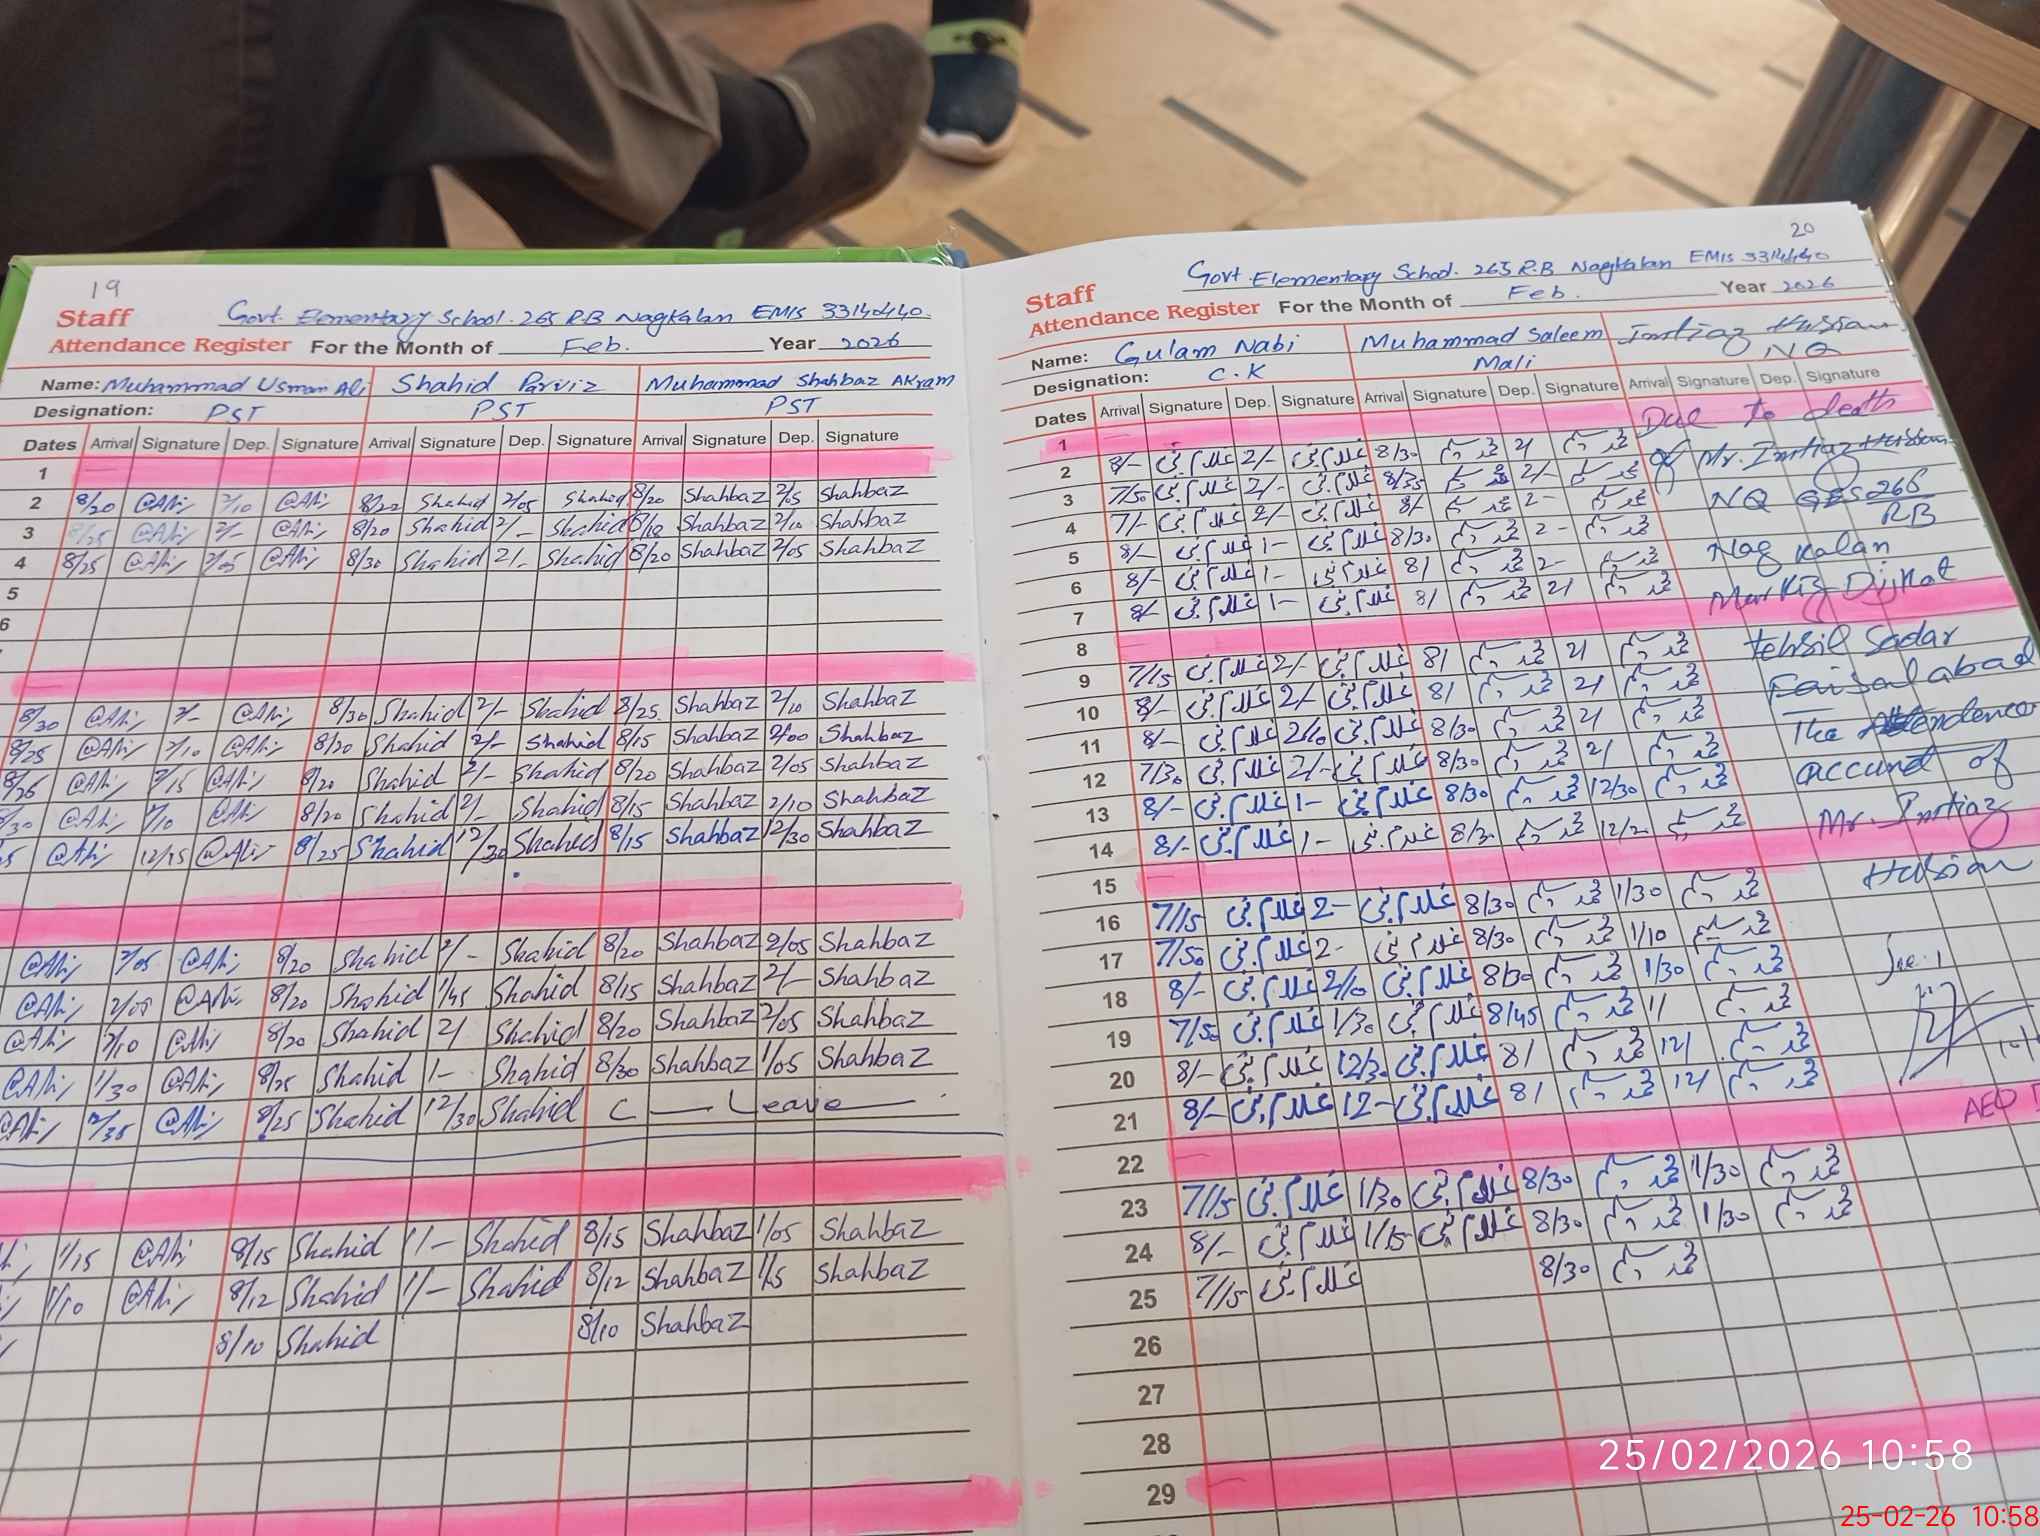 19
Staff Govt. Elementary School. 265 R.B Nagkalan EMIS 33140440.
Attendance Register For the Month of Feb. Year 2026
Name: Muhammad Usman Ali Shahid Parviz Muhammad Shahbaz Akram
Designation: PST PST PST
Dates Arrival Signature Dep. Signature Arrival Signature Dep. Signature Arrival Signature Dep. Signature
1
2 8/20 @Ali 2/10 @Ali 8/22 Shahid 2/05 Shahid 8/20 Shahbaz 2/05 Shahbaz
3 8/25 @Ali 2/- @Ali 8/20 Shahid 2/- Shahid 8/10 Shahbaz 2/10 Shahbaz
4 8/25 @Ali 2/05 @Ali 8/30 Shahid 2/- Shahid 8/20 Shahbaz 2/05 Shahbaz
5
6
8/30 @Ali 2/- @Ali 8/30 Shahid 2/- Shahid 8/25 Shahbaz 2/10 Shahbaz
8/25 @Ali 2/10 @Ali 8/20 Shahid 2/- Shahid 8/15 Shahbaz 2/00 Shahbaz
@Ali 2/15 @Ali 8/20 Shahid 2/- Shahid 8/20 Shahbaz 2/05 Shahbaz
@Ali 2/10 @Ali 8/20 Shahid 2/- Shahid 8/15 Shahbaz 2/10 Shahbaz
@Ali 12/45 @Ali 8/25 Shahid 12/30 Shahid 8/15 Shahbaz 12/30 Shahbaz
@Ali 2/05 @Ali 8/20 Shahid 2/- Shahid 8/20 Shahbaz 2/05 Shahbaz
@Ali 2/05 @Ali 8/20 Shahid 1/45 Shahid 8/15 Shahbaz 2/- Shahbaz
@Ali 2/10 @Ali 8/20 Shahid 2/ Shahid 8/20 Shahbaz 2/05 Shahbaz
@Ali 1/30 @Ali 8/25 Shahid 1- Shahid 8/30 Shahbaz 1/05 Shahbaz
@Ali 12/35 @Ali 8/25 Shahid 12/30 Shahid C — Leave —
1/15 @Ali 8/15 Shahid 1/- Shahid 8/15 Shahbaz 1/05 Shahbaz
1/10 @Ali 8/12 Shahid 1/- Shahid 8/12 Shahbaz 1/5 Shahbaz
8/10 Shahid 8/10 Shahbaz
20
Staff Govt. Elementary School. 265 R.B Nagkalan EMIS 33140440
Attendance Register For the Month of Feb. Year 2026
Name: Gulam Nabi Muhammad Saleem Imtiaz Hussian
Designation: C.K Mali NQ
Dates Arrival Signature Dep. Signature Arrival Signature Dep. Signature Arrival Signature Dep. Signature
1 Due to death
2 8/- غلام نبی 2/- غلام نبی 8/30 محمد سلیم 2/ محمد سلیم of Mr. Imtiaz Hussian
3 7/50 غلام نبی 2/- غلام نبی 8/35 محمد سلیم 2/- محمد سلیم
4 7/- غلام نبی 2/ غلام نبی 8/ محمد سلیم 2- محمد سلیم NQ GES 266
RB
5 8/- غلام نبی 1- غلام نبی 8/30 محمد سلیم 2- محمد سلیم
6 8/- غلام نبی 1- غلام نبی 8/ محمد سلیم 2- محمد سلیم Nag kalan
7 8/- غلام نبی 1- غلام نبی 8/ محمد سلیم 2/ محمد سلیم Markiz Dijkot
8
9 7/15 غلام نبی 2/- غلام نبی 8/ محمد سلیم 2/ محمد سلیم tehsil Sadar
10 8/- غلام نبی 2/- غلام نبی 8/ محمد سلیم 2/ محمد سلیم Faisalabad
11 8/- غلام نبی 2/10 غلام نبی 8/30 محمد سلیم 2/ محمد سلیم The Attendence
12 7/30 غلام نبی 2/- غلام نبی 8/30 محمد سلیم 2/ محمد سلیم accund of
13 8/- غلام نبی 1- غلام نبی 8/30 محمد سلیم 12/30 محمد سلیم
14 8/- غلام نبی 1- غلام نبی 8/30 محمد سلیم 12/20 محمد سلیم Mr. Imtiaz
15 Hussian
16 7/15 غلام نبی 2- غلام نبی 8/30 محمد سلیم 1/30 محمد سلیم
17 7/50 غلام نبی 2- غلام نبی 8/30 محمد سلیم 1/10 محمد سلیم
18 8/- غلام نبی 2/10 غلام نبی 8/30 محمد سلیم 1/30 محمد سلیم
19 7/50 غلام نبی 1/30 غلام نبی 8/45 محمد سلیم 1/ محمد سلیم
20 8/- غلام نبی 12/30 غلام نبی 8/ محمد سلیم 12/ محمد سلیم
21 8/- غلام نبی 12- غلام نبی 8/ محمد سلیم 12/ محمد سلیم
22 AEO
23 7/15 غلام نبی 1/30 غلام نبی 8/30 محمد سلیم 1/30 محمد سلیم
24 8/- غلام نبی 1/15 غلام نبی 8/30 محمد سلیم 1/30 محمد سلیم
25 7/15 غلام نبی 8/30 محمد سلیم
26
27
28
29
25/02/2026 10:58
25-02-26 10:58